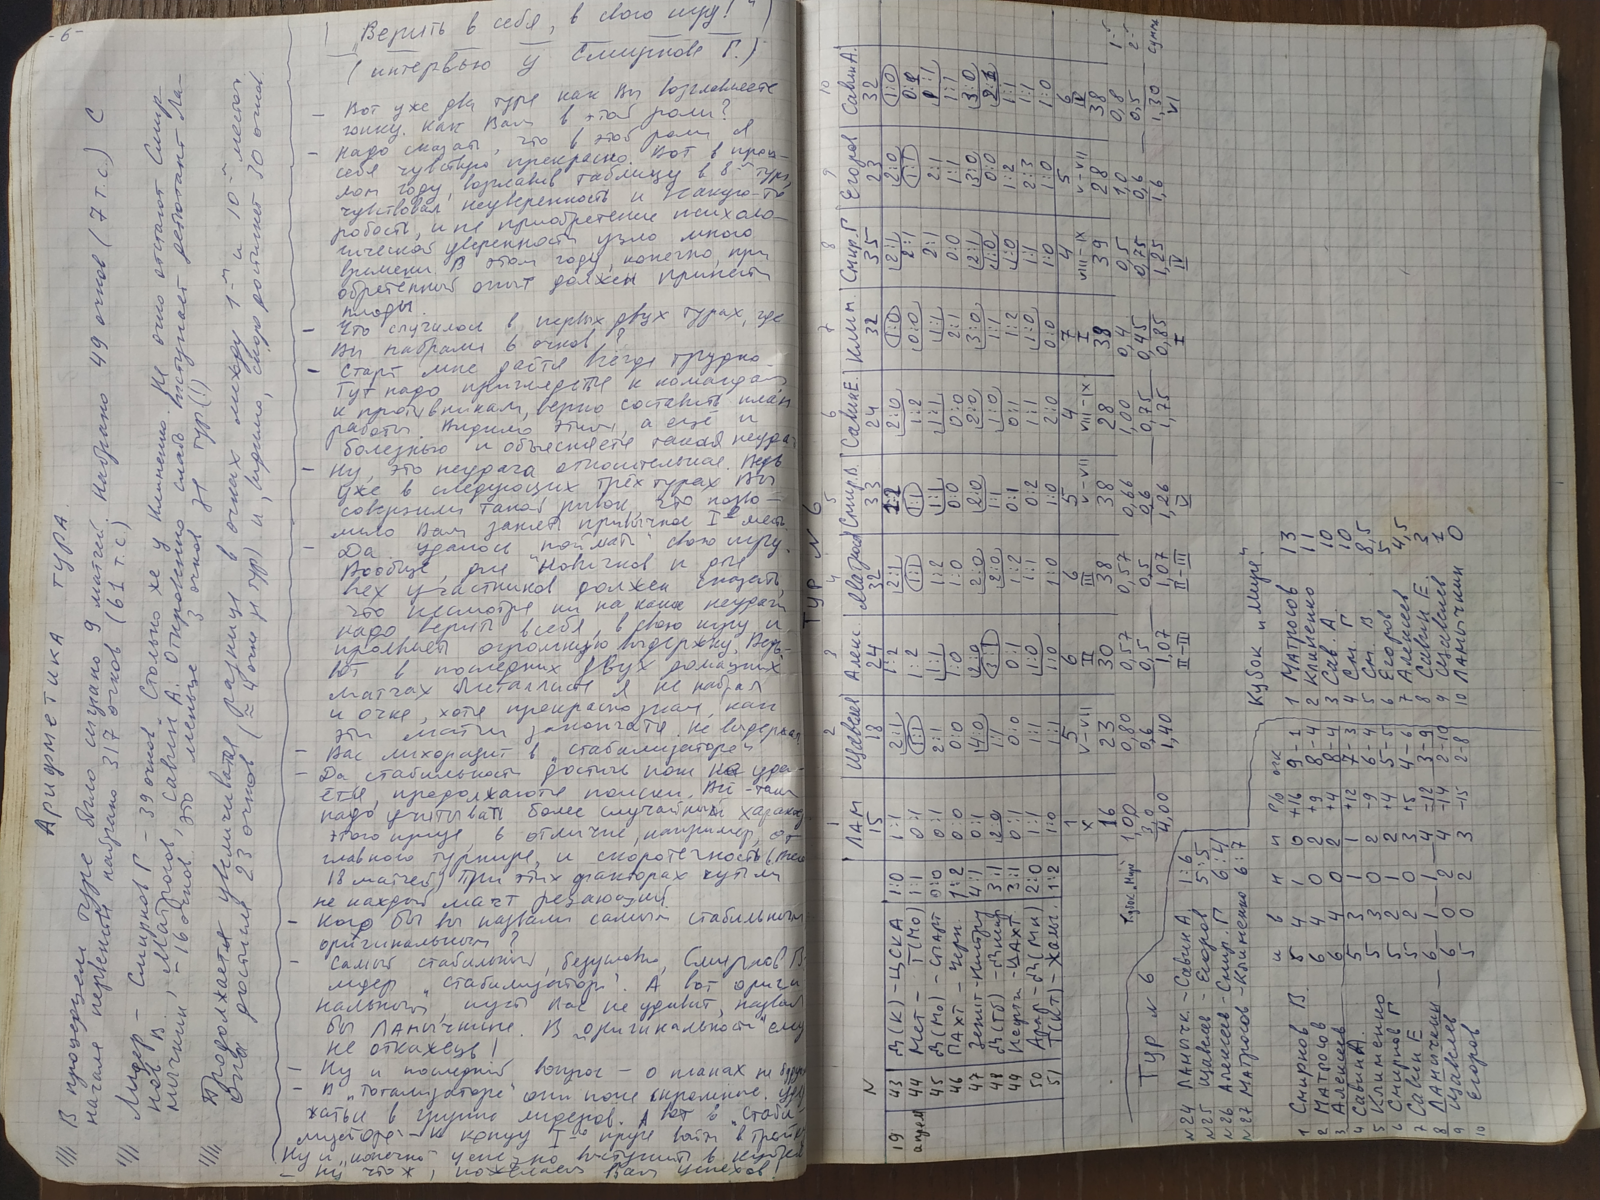 -6-
Арифметика тура
//// В прошедшем туре было сыграно 9 матчей. Набрано 49 очков (7 т.с.) С
начала первенства набрано 317 очков (61 т.с.)
//// Лидер - Смирнов Г - 39 очков. Столько же у Клименко. На очко отстают Смир-
нов В., Матросов, Савин А. Откровенно слабо выступает дебютант Ла-
мычкин - 16 очков. Это меньше 3 очков за тур(!)
//// Продолжает увеличиваться разница в очках между 1-м и 10-м местом
Она достигла 23 очков (≈ 4 очка за тур) и, видимо, скоро достигнет 30 очков
"Верить в себя, в свою игру!"
(интервью у Смирнова Г.)
- Вот уже два тура как Вы возглавляете
гонку. Как Вам в этой роли?
- Надо сказать, что в этой роли я
себя чувствую прекрасно. Вот в прош-
лом году, возглавив таблицу в 8-м туре,
чувствовал неуверенность и какую-то
робость, и на приобретение психоло-
гической уверенности ушло много
времени. В этом году, конечно, при-
обретенный опыт должен принести
плоды.
- Что случилось в первых двух турах, где
Вы набрали 6 очков?
- Старт мне даётся всегда трудно
Тут надо приглядеться к командам
к противникам, верно составить план
работы. Видимо этим, а ещё и
болезнью и объясняется такая неудача
- Ну, это неудача относительная. Ведь
уже в следующих трёх турах Вы
совершили такой рывок, что позво-
лило Вам занять привычное I-е место
- Да. удалось "поймать" свою игру.
Вообще, для новичков и для
всех участников должен сказать,
что несмотря ни на какие неудачи
надо верить в себя, в свою игру и
проявлять огромную выдержку. Ведь
вот в последних двух домашних
матчах Металлиста я не набрал
и очка, хотя прекрасно знал, как
эти матчи закончатся. Не выдержал
- Вас лихорадит в "стабилизаторе"
- Да стабильность достичь пока не уда-
ётся, продолжаются поиски. Всё-таки
надо учитывать более случайный характер
этого приза, в отличие, например, от
главного турнира, и скоротечность (
18 матчей). При этих факторах чуть ли
не каждый матч решающий.
- Кого бы вы назвали самым стабильным
оригинальным?
- Самый стабильный, безусловно, Смирнов В -
лидер "стабилизатора". А вот ориги-
нальным, пусть Вас не удивит, назвал
бы Ламычкина. В "оригинальности" ему
не откажешь!
- Ну и последний вопрос - о планах на будущее
- В "Тотализаторе" они пока скромные. Удер-
жаться в группе лидеров. А вот в "Стаби-
лизаторе" - к концу I-го приза войти в тройку
Ну и, конечно успешно выступить в кубке
- Ну что ж, пожелаем Вам успехов!
ТУР N 6
1 2 3 4 5 6 7 8 9 10
N ЛАМ Щавелев Алек. Матросов Смир.В. Савин Е. Клим. Смир.Г Егоров Савин А.
15 18 24 32 33 24 32 35 23 32
19 апреля 43 Д(К) - ЦСКА 1:0 1:1 2:1 1:2 2:1 1:2 2:0 1:0 2:1 2:0 1:0
44 Мет - Т(Мо) 1:1 0:1 1:1 1:2 1:1 1:1 1:2 0:0 2:1 1:1
45 Д(Мо) - Спарт 0:0 0:1 2:1 1:1 1:2 1:1 1:1 1:1 2:1 2:1 1:1
46 Пахт - Черн. 1:2 0:0 0:0 1:0 1:0 0:0 0:0 2:1 0:0 1:1 1:1
47 Зенит - Кайрат 4:1 0:1 4:0 2:0 2:0 2:0 2:0 3:0 2:1 3:0 3:0
48 Д(Тб) - Д(Мин) 3:1 2:0 1:1 1:1 2:0 1:1 1:0 1:1 1:0 0:0 2:1
49 Карп. - Шахт 3:1 0:1 0:0 0:1 1:2 0:1 0:1 1:2 1:0 1:2 1:1
50 Арар - Д(Мн) 2:0 1:1 1:1 1:0 1:1 0:2 1:1 1:0 1:1 2:3 1:1
51 Т(Кт) - Жальг. 1:2 1:0 1:1 1:0 1:0 1:0 2:0 0:0 1:0 1:0 1:0
1 5 6 6 5 4 7 4 5 6
X V-VII II III V-VII VIII-IX I VIII-IX V-VII IV
16 23 30 38 38 28 39 39 28 38
Кубок "Мира" 1,00 0,80 0,57 0,57 0,66 1,00 0,4 0,5 1,0 0,8 1-й
3,0 0,6 0,5 0,5 0,6 0,75 0,45 0,75 0,6 0,5 2-й
4,00 1,40 1,07 1,07 1,26 1,75 0,85 1,25 1,6 1,30 сумма
II-III II-III V I IV VI
Тур N 6
N24 Ламычк. - Савин А. 1:6
N25 Щавелев - Егоров 5:5
N26 Алексеев - Смир. Г 6:4
N27 Матросов - Клименко 6:7
и в н п Р/о очк
1 Смирнов В. 5 4 1 0 +16 9-1
2 Матросов 6 4 0 2 +9 8-4
3 Алексеев 6 4 0 2 +4 8-4
4 Савин А. 5 3 1 1 +12 7-3
5 Клименко 5 3 0 2 -9 6-4
6 Смирнов Г 5 2 1 2 +4 5-5
7 Савин Е 5 2 0 3 +5 4-6
8 Ламычкин 6 1 1 4 -12 3-9
9 Щавелев 6 0 2 4 -14 2-10
10 Егоров 5 0 2 3 -15 2-8
Кубок "Мира"
1 Матросов 13
2 Клименко 11
3 Сав. А 10
4 См. Г 10
5 См. В 8,5
6 Егоров 5
7 Алексеев 4,5
8 Савин Е. 3
9 Щавелев 1
10 Ламычкин 0